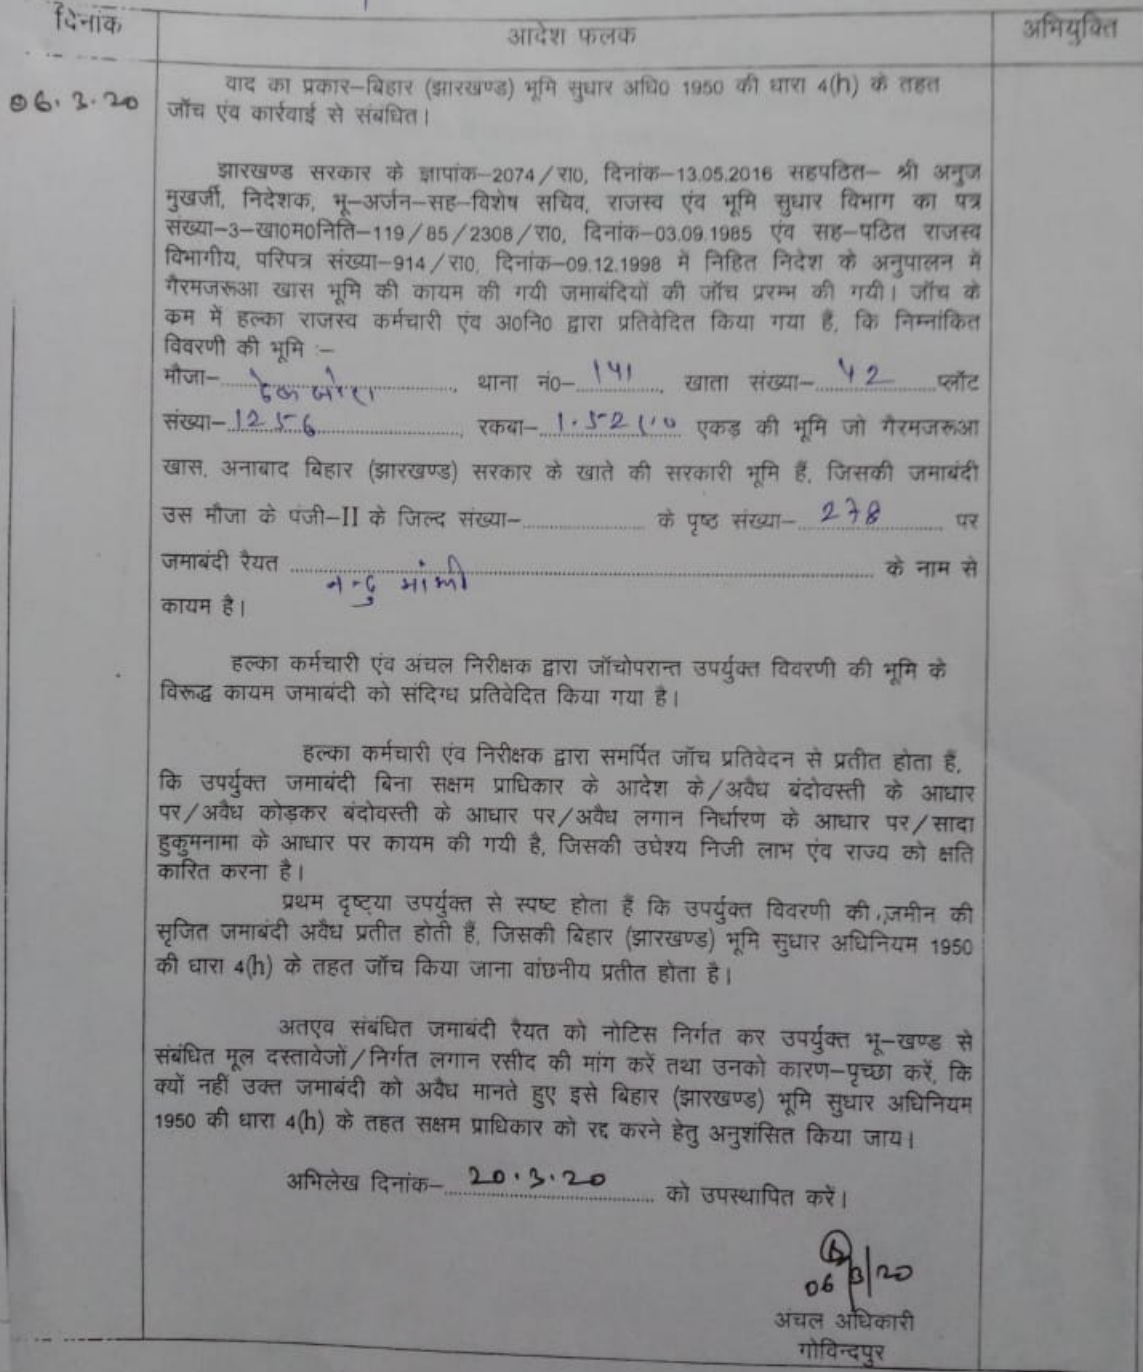 दिनांक
आदेश फलक
अभियुक्ति
06.3.20
वाद का प्रकार–बिहार (झारखण्ड) भूमि सुधार अधि0 1950 की धारा 4(h) के तहत
जॉच एंव कार्रवाई से संबधित।
झारखण्ड सरकार के ज्ञापांक–2074/रा0, दिनांक–13.05.2016 सहपठित– श्री अनुज
मुखर्जी, निदेशक, भू–अर्जन–सह–विशेष सचिव, राजस्व एंव भूमि सुधार विभाग का पत्र
संख्या–3–खा0म0निति–119/85/2308/रा0, दिनांक–03.09.1985 एंव सह–पठित राजस्व
विभागीय, परिपत्र संख्या–914/रा0, दिनांक–09.12.1998 में निहित निदेश के अनुपालन में
गैरमजरूआ खास भूमि की कायम की गयी जमाबंदियों की जॉच प्ररम्भ की गयी। जॉच के
कम में हल्का राजस्व कर्मचारी एंव अ0नि0 द्वारा प्रतिवेदित किया गया हैं, कि निम्नांकित
विवरणी की भूमि :–
मौजा– थाना नं0– 141 खाता संख्या– 42 प्लॉट
संख्या– 1256, रकबा– एकड़ की भूमि जो गैरमजरूआ
खास, अनाबाद बिहार (झारखण्ड) सरकार के खाते की सरकारी भूमि हैं, जिसकी जमाबंदी
उस मौजा के पंजी–II के जिल्द संख्या– के पृष्ठ संख्या– 278 पर
जमाबंदी रैयत के नाम से
कायम है।
हल्का कर्मचारी एंव अंचल निरीक्षक द्वारा जॉचोपरान्त उपर्युक्त विवरणी की भूमि के
विरूद्ध कायम जमाबंदी को संदिग्ध प्रतिवेदित किया गया है।
हल्का कर्मचारी एंव निरीक्षक द्वारा समर्पित जॉच प्रतिवेदन से प्रतीत होता हैं,
कि उपर्युक्त जमाबंदी बिना सक्षम प्राधिकार के आदेश के/अवैध बंदोवस्ती के आधार
पर/अवैध कोड़कर बंदोवस्ती के आधार पर/अवैध लगान निर्धारण के आधार पर/सादा
हुकुमनामा के आधार पर कायम की गयी है, जिसकी उघेश्य निजी लाभ एंव राज्य को क्षति
कारित करना है।
प्रथम दृष्ट्या उपर्युक्त से स्पष्ट होता हैं कि उपर्युक्त विवरणी की ज़मीन की
सृजित जमाबंदी अवैध प्रतीत होती हैं, जिसकी बिहार (झारखण्ड) भूमि सुधार अधिनियम 1950
की धारा 4(h) के तहत जॉच किया जाना वांछनीय प्रतीत होता है।
अतएव संबंधित जमाबंदी रैयत को नोटिस निर्गत कर उपर्युक्त भू–खण्ड से
संबंधित मूल दस्तावेजों/निर्गत लगान रसीद की मांग करें तथा उनको कारण–पृच्छा करें, कि
क्यों नहीं उक्त जमाबंदी को अवैध मानते हुए इसे बिहार (झारखण्ड) भूमि सुधार अधिनियम
1950 की धारा 4(h) के तहत सक्षम प्राधिकार को रद्द करने हेतु अनुशंसित किया जाय।
अभिलेख दिनांक– 20.3.20 को उपस्थापित करें।
06/3/20
अंचल अधिकारी
गोविन्दपुर